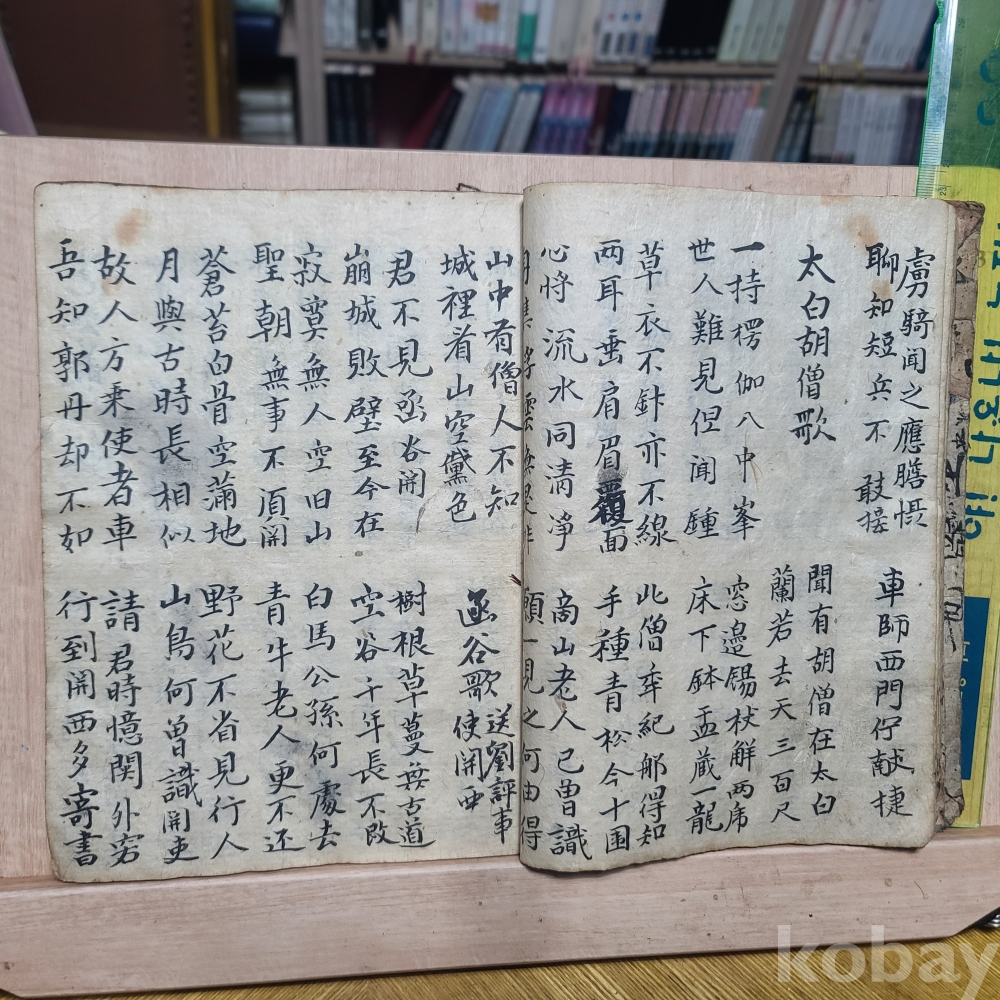 虜騎聞之應膽慑
聊知短兵不敢接
車師西門佇献捷
太白胡僧歌
聞有胡僧在太白
蘭若去天三百尺
一持楞伽八中峯
世人難見但聞鍾
窓邉錫杖解兩虎
床下鉢盂藏一龍
草衣不針亦不線
两耳垂肩眉覆面
此僧年紀那得知
手種青松今十围
心将流水同清淨
雲無是非
商山老人已曾識
願一見之何由得
山中有僧人不知
城裡看山空黛色
函谷歌
送劉評事使関西
君不見函谷関
崩城敗壁至今在
樹根草蔓遮古道
空谷千年長不改
寂寞無人空旧山
聖朝無事不須関
白馬公孫何處去
青牛老人更不还
蒼苔白骨空滿地
月與古時長相似
野花不省見行人
山鳥何曾識関吏
故人方乘使者車
吾知郭丹却不如
請君時憶関外客
行到関西多寄書
kobay